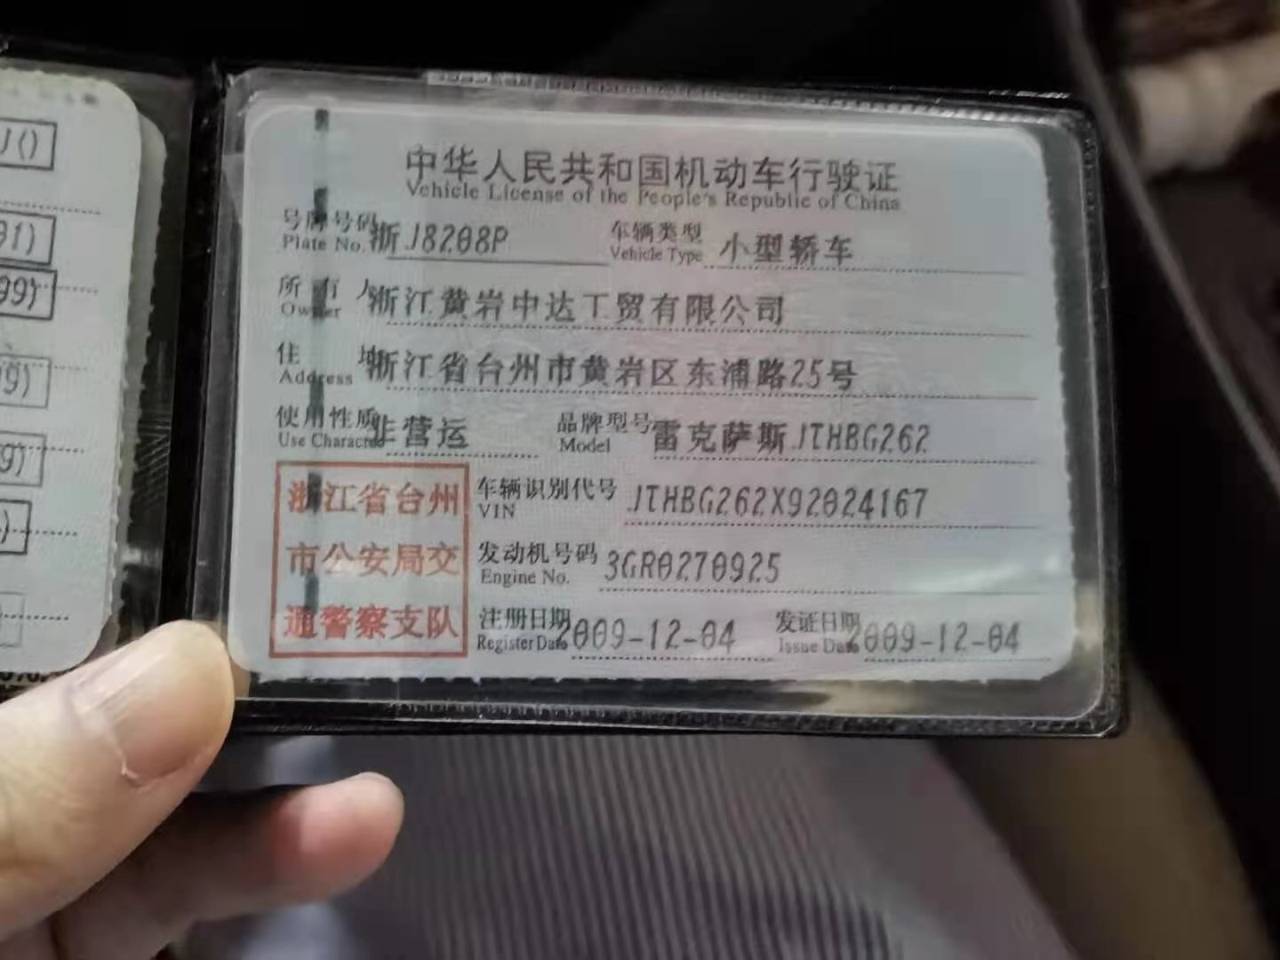 中华人民共和国机动车行驶证
Vehicle License of the People's Republic of China
号牌号码 浙J8208P 车辆类型 小型轿车
Plate No. Vehicle Type
所有人 浙江黄岩中达工贸有限公司
Owner
住址 浙江省台州市黄岩区东浦路25号
Address
使用性质 非营运 品牌型号 雷克萨斯JTHBG262
Use Character Model
浙江省台州
市公安局交
通警察支队
车辆识别代号 JTHBG262X92024167
VIN
发动机号码 3GR0270925
Engine No.
注册日期 2009-12-04 发证日期 2009-12-04
Register Date Issue Date